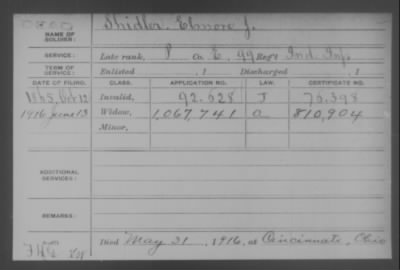 NAME OF SOLDIER: Shidler, Elmore J.
SERVICE: Late rank, P Co. E, 99 Reg't Ind. Inf.
TERM OF SERVICE: Enlisted , 1 Discharged , 1
DATE OF FILING. CLASS. APPLICATION NO. LAW. CERTIFICATE NO.
1865, Oct 12 Invalid, 92.628 J 76.398
1916 June 13 Widow, 1,067,741 O 810,904
Minor,
ADDITIONAL SERVICES:
REMARKS:
Died May 21, 1916, at Cincinnati, Ohio